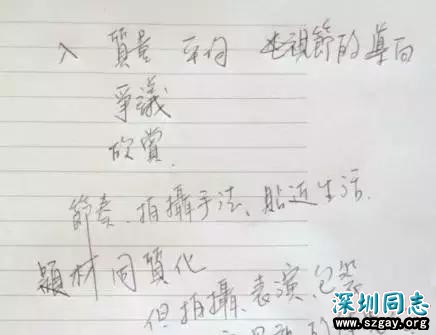 入 質量 平均 电視節的導向
爭議
欣賞.
節奏、拍攝手法、貼近生活.
題材同質化
但拍攝、表演、包裝
深圳同志
www.szgay.org